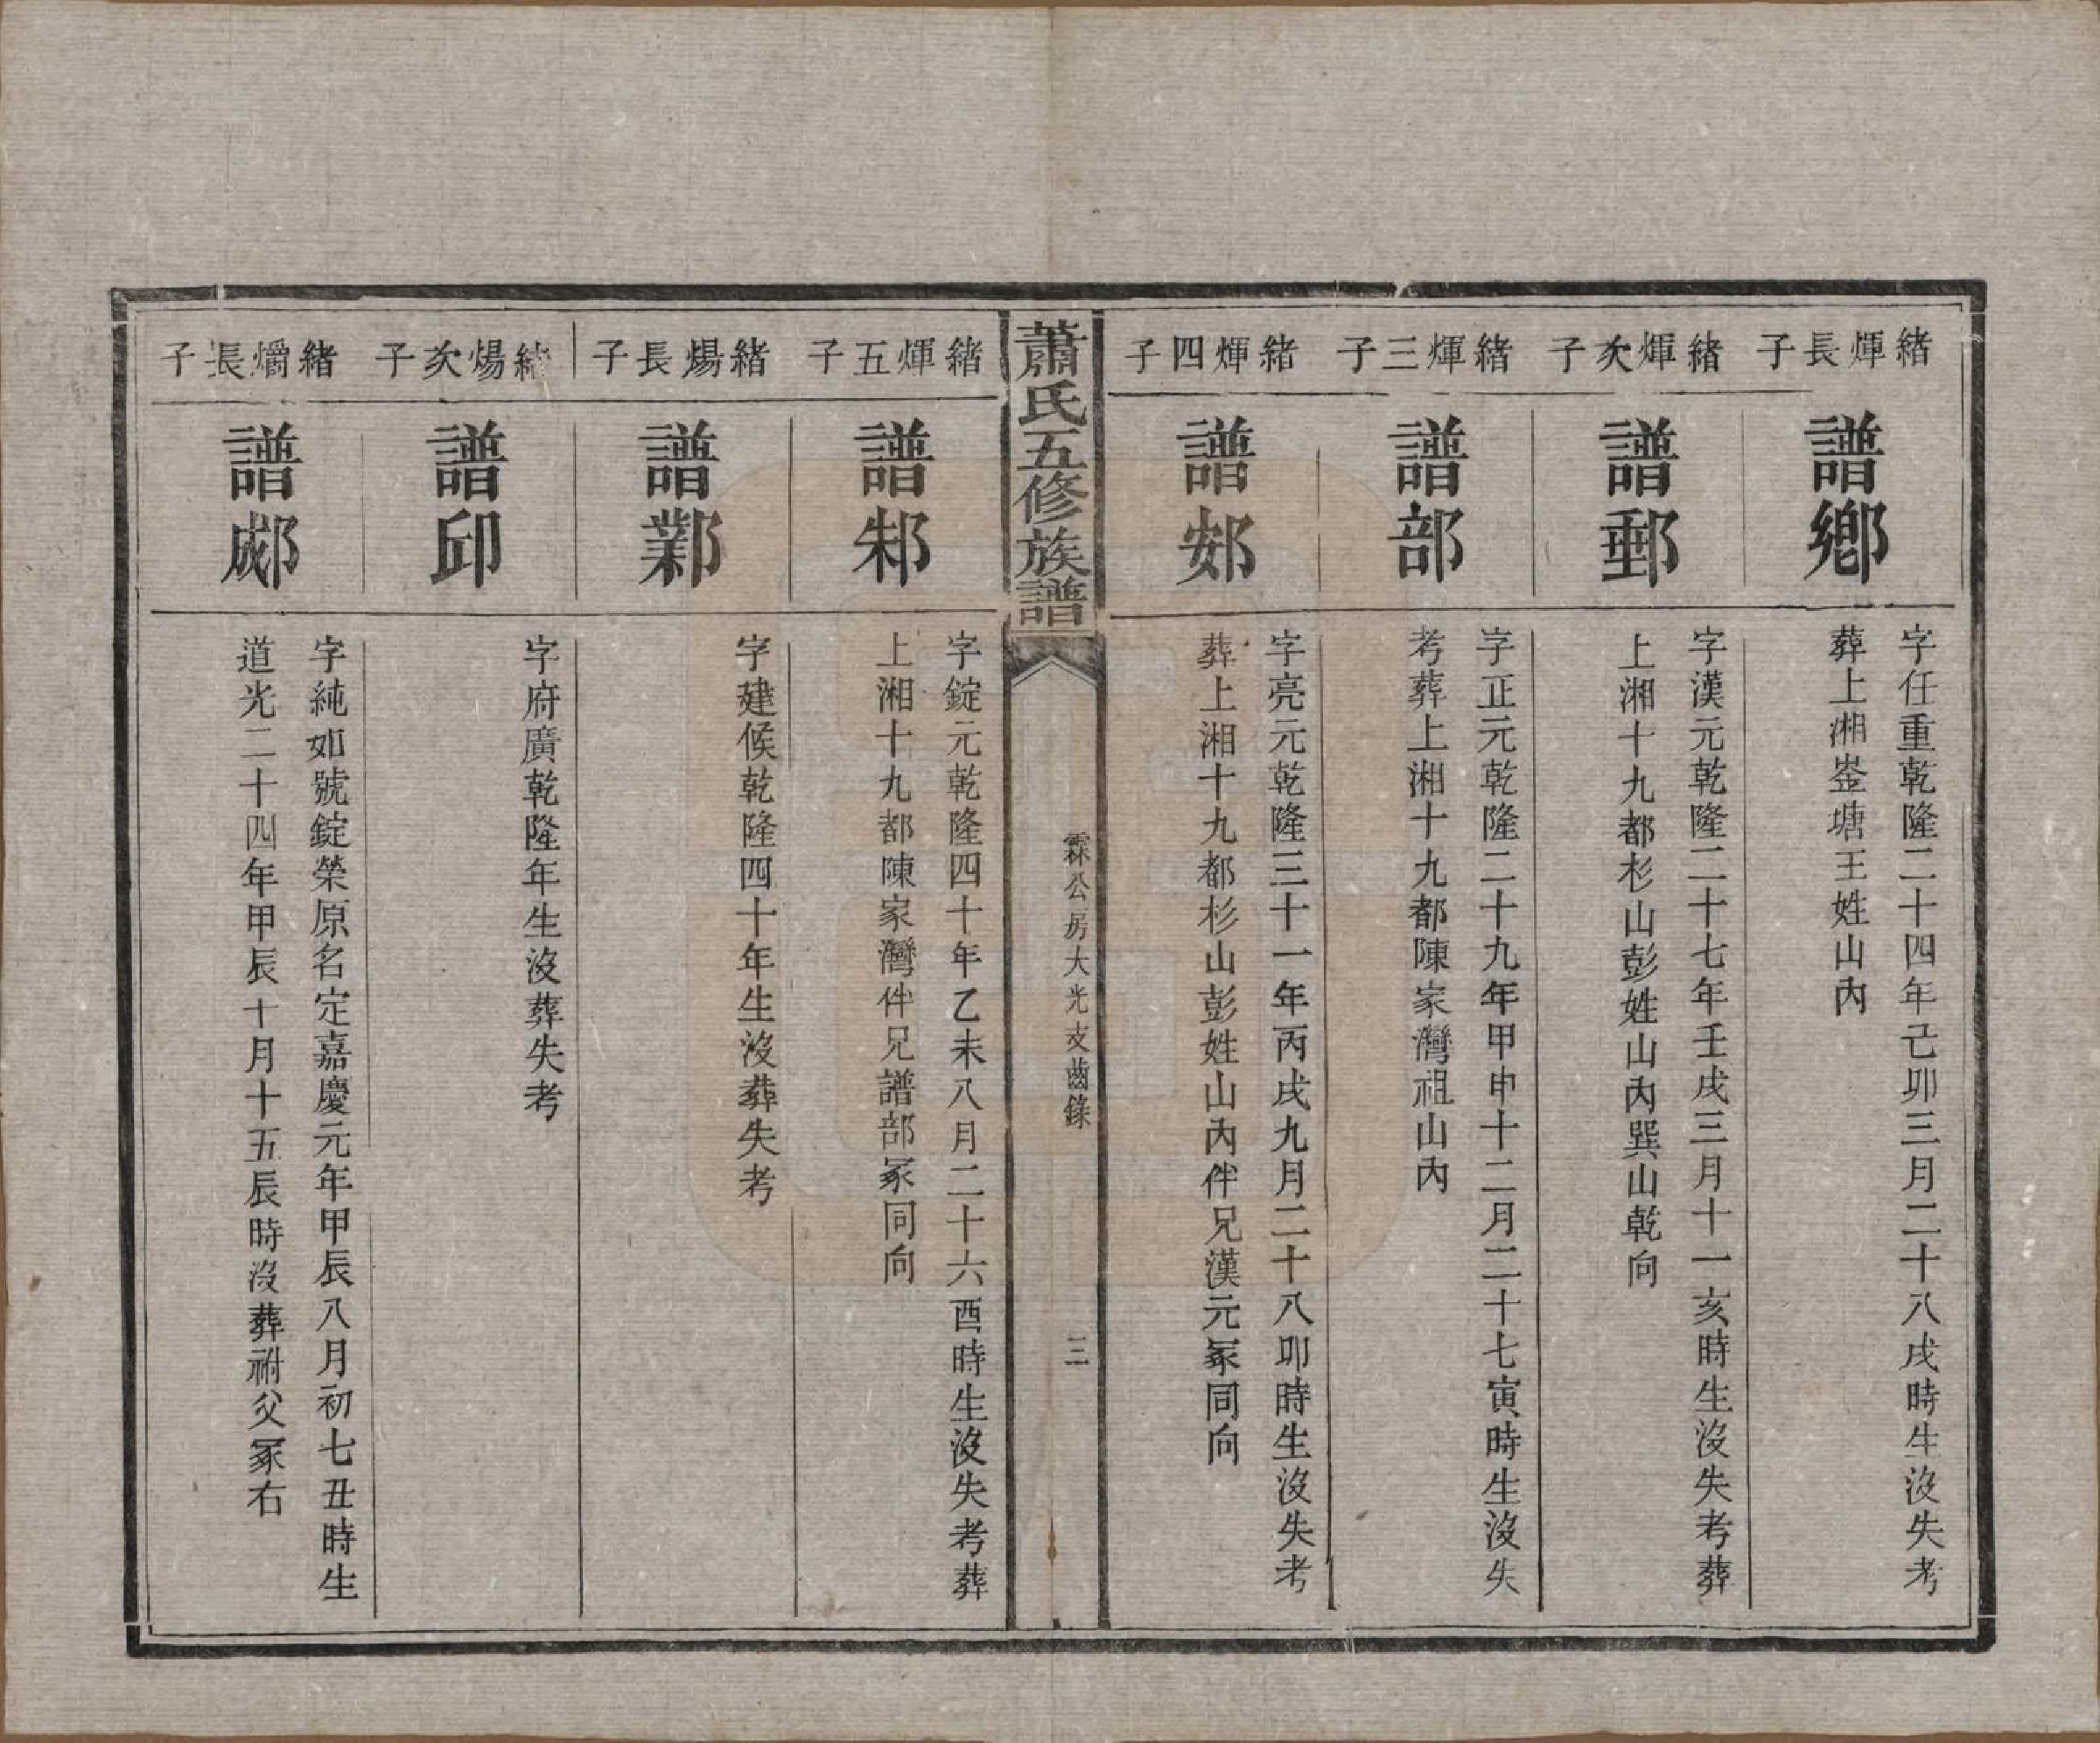 緒煇長子
譜鄉
字任重乾隆二十四年己卯三月二十八戌時生沒失考
葬上湘塋塘王姓山內
緒煇次子
譜郵
字漢元乾隆二十七年壬戌三月十一亥時生沒失考葬
上湘十九都杉山彭姓山內巽山乾向
緒煇三子
譜部
字正元乾隆二十九年甲申十二月二十七寅時生沒失
考葬上湘十九都陳家灣祖山內
緒煇四子
譜郊
字亮元乾隆三十一年丙戌九月二十八卯時生沒失考
葬上湘十九都杉山彭姓山內伴兄漢元冢同向
蕭氏五修族譜
霖公房大光支齒錄
三
緒煇五子
譜邾
字錠元乾隆四十年乙未八月二十六酉時生沒失考葬
上湘十九都陳家灣伴兄譜部冢同向
緒煬長子
譜鄴
字建候乾隆四十年生沒葬失考
緒煬次子
譜邱
字府廣乾隆年生沒葬失考
緒爝長子
譜郕
字純如號錠榮原名定嘉慶元年甲辰八月初七丑時生
道光二十四年甲辰十月十五辰時沒葬祔父冢右